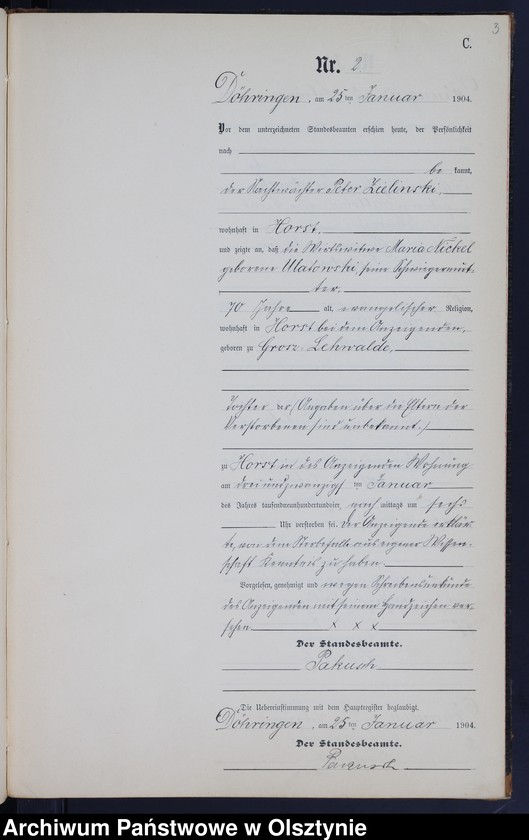 3
C.
Nr. 2
Döhringen, am 25ten Januar 1904.
Vor dem unterzeichneten Standesbeamten erschien heute, der Persönlichkeit
nach
be kannt,
der Nachtwächter Peter Zielinski,
wohnhaft in Horst,
und zeigte an, daß die Wirtswitwe Maria Nickel
geborene Ulatowski, seine Schwiegermut-
ter,
70 Jahre alt, evangelischer Religion,
wohnhaft in Horst bei dem Anzeigenden,
geboren zu Grosz Lehwalde,
Tochter (Angaben über die Eltern der
Verstorbenen sind unbekannt.)
zu Horst in des Anzeigenden Wohnung
am dreiundzwanzigsten Januar
des Jahres tausendneunhundertundvier, nach mittags um sechs
Uhr verstorben sei. Der Anzeigende erklär-
te, von dem Sterbefalle aus eigener Wissen-
schaft Kenntnis zu haben.
Vorgelesen, genehmigt und wegen Schreibensunkunde
des Anzeigenden mit seinem Handzeichen ver-
sehen x x x
Der Standesbeamte.
Pakusch
Die Uebereinstimmung mit dem Hauptregister beglaubigt.
Döhringen, am 25ten Januar 1904.
Der Standesbeamte.
Pakusch
Archiwum Państwowe w Olsztynie